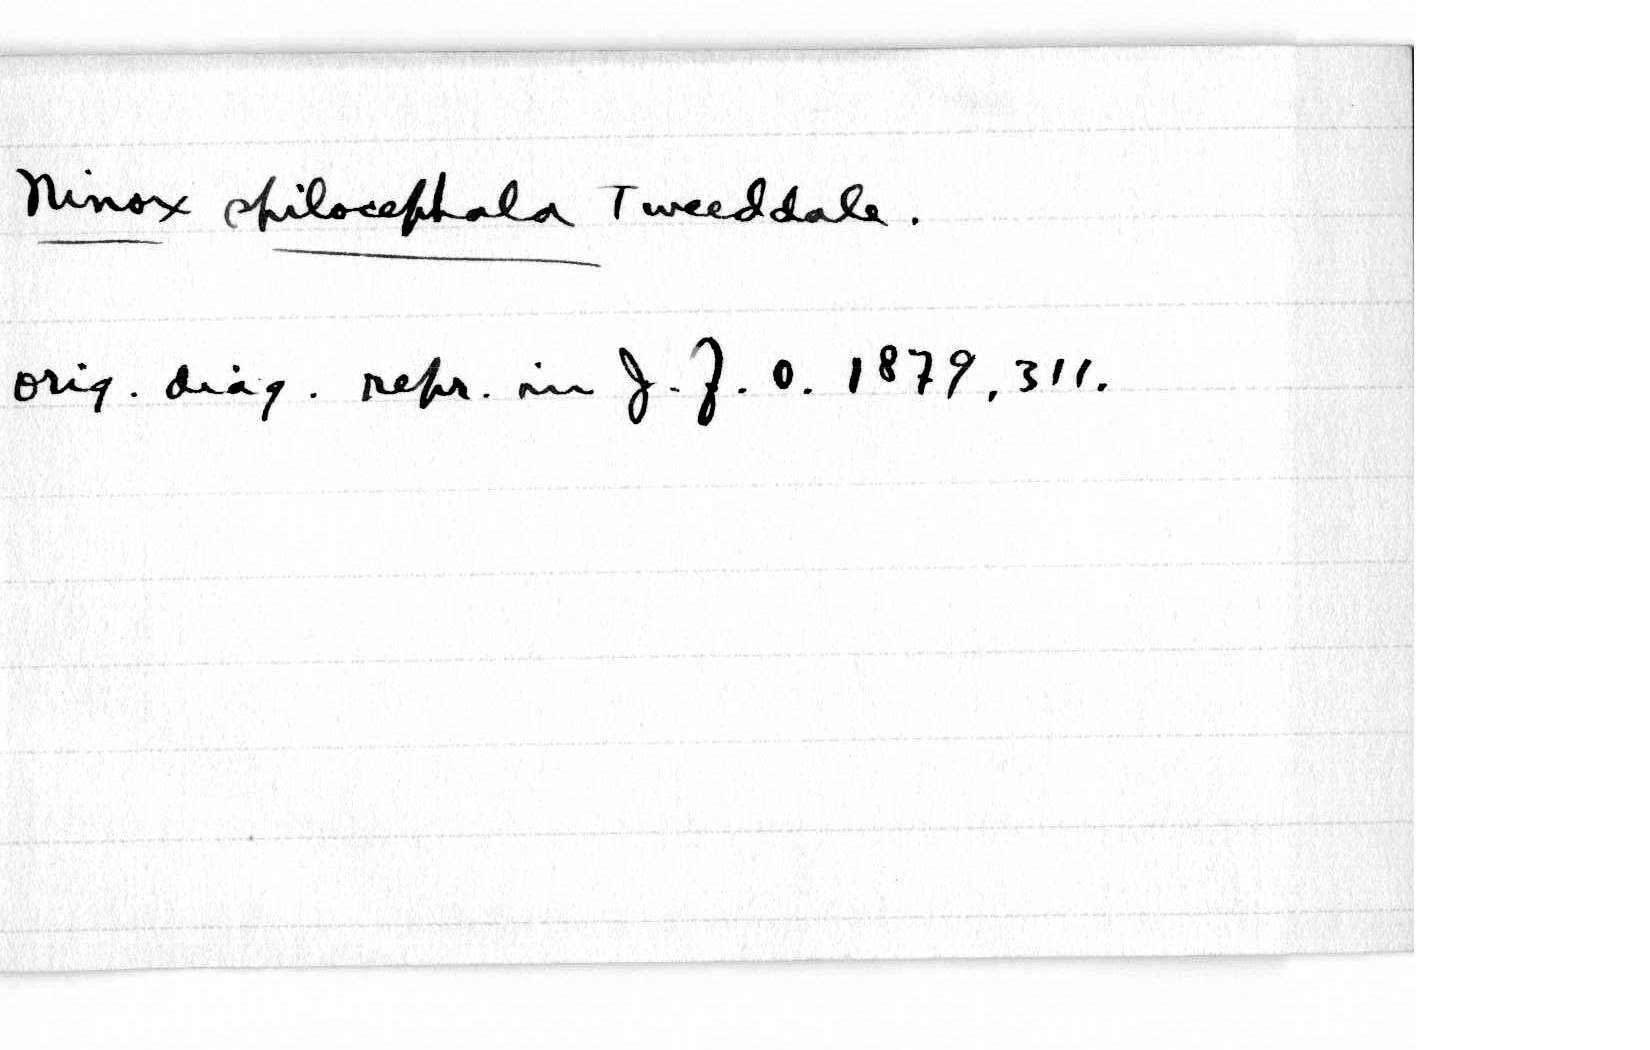 Ninox spilocephala Tweeddale.
orig. diag. repr. in J. f. O. 1879, 311.